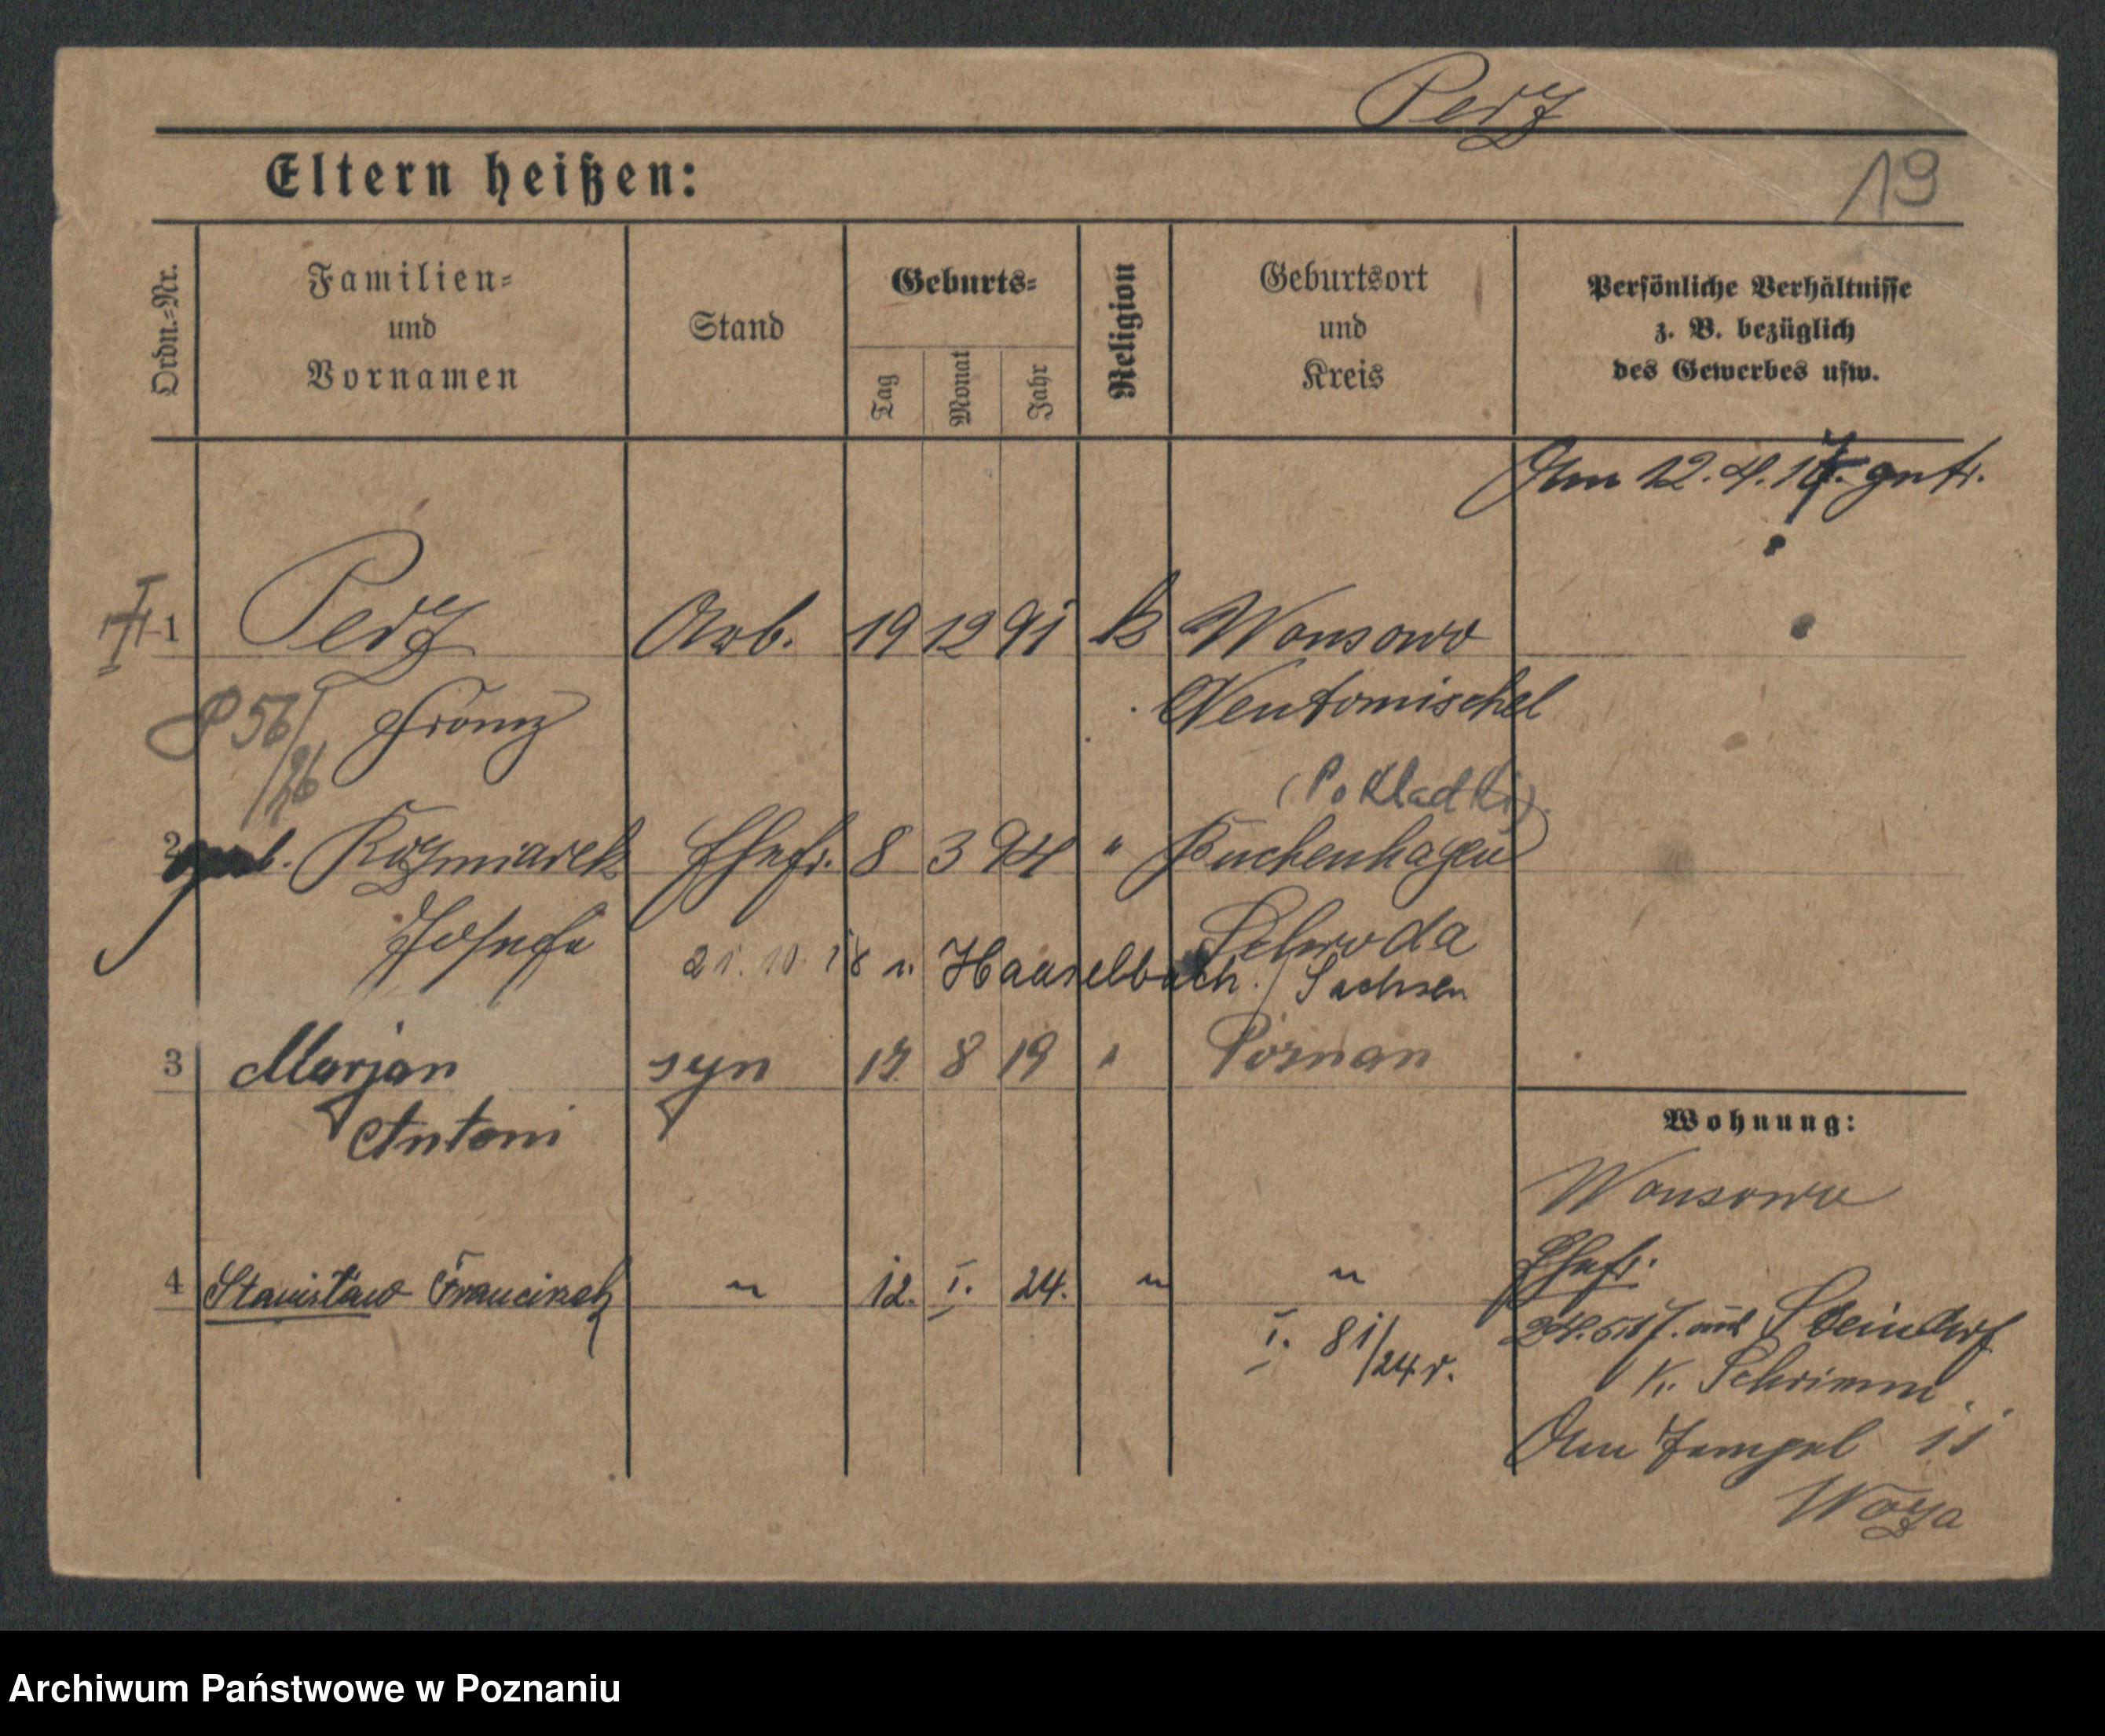 Perz
Eltern heißen:
19
Ordn.=Nr.
Familien=
und
Vornamen
Stand
Geburts=
Tag
Monat
Jahr
Religion
Geburtsort
und
Kreis
Persönliche Verhältnisse
z. B. bezüglich
des Gewerbes usw.
Am 12.4.17. getr.
1 Perz Arb. 19 12 91 K Wonsowo
P 56/26 Franz Neutomischel
(Pokladki).
2 geb. Kozmiarek Ehefr. 8 3 94 " Buchenhagen
Josefa Schroda
21.10.18 n. Haaselbach / Sachsen
3 Marjan syn 17 8 19 " Poznan
Antoni
Wohnung:
Wonsowo
4 Stanisław Franciszek " 12. I. 24. " "
Ehefr.
I. 81/24 r.
24.5.17. aus Steindorf
Kr. Schrimm.
Am Tempel 11
Woza
Archiwum Państwowe w Poznaniu